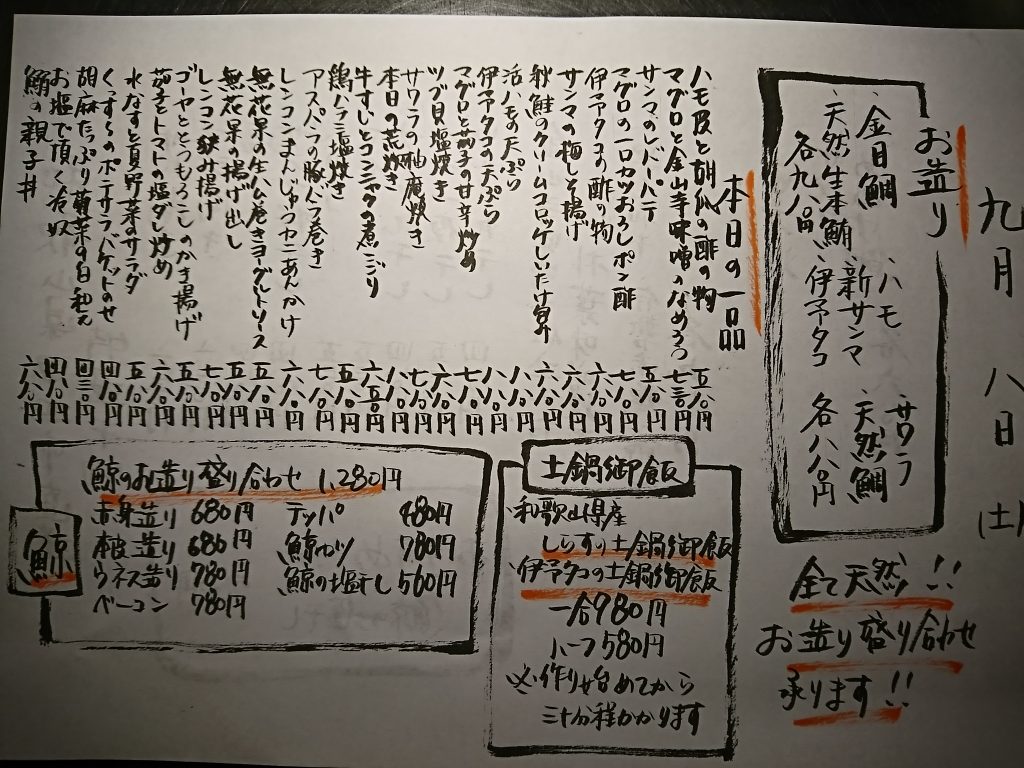 九月 八日 (土)
お造り
、金目鯛 、ハモ 、サワラ
、天然生本鮪 、新サンマ 、天然鯛
各九八〇円 、伊予タコ 各八八〇円
全て天然!!
お造り盛り合わせ
承ります!!
本日の一品
ハモ皮と胡瓜の酢の物 五八〇円
マグロと金山寺味噌のなめろう 七三〇円
サンマのレバーパテ 五八〇円
マグロの一口カツおろしポン酢 七八〇円
伊予タコの酢の物 六八〇円
サンマの梅しそ揚げ 六八〇円
秋鮭のクリームコロッケしいたけ
活ハモの天ぷら
伊予タコの天ぷら
マグロと茄子の甘辛炒め
ツブ貝塩焼き
サワラの柚庵焼き
本日の荒炊き
牛すじとコンニャクの煮こごり
鶏ハラミ塩焼き
アスパラの豚バラ巻き
レンコンまんじゅうカニあんかけ
無花果の生ハム巻きヨーグルトソース
無花果の揚げ出し
レンコン挟み揚げ
ゴーヤととうもろこしのかき揚げ
茄子とトマトの塩ダレ炒め
水なすと夏野菜のサラダ
くっするのポテサラバケットのせ
胡麻たっぷり菊菜の白和え 四三〇円
お塩で頂く冷奴 四八〇円
鮪の親子丼 六八〇円
土鍋御飯
、和歌山県産
しらすの土鍋御飯
、伊予タコの土鍋御飯
一合980円
ハーフ580円
※作り始めてから
三十分程かかります
鯨
鯨のお造り盛り合わせ 1,280円
赤身造り 680円 テッパ 480円
本皮造り 680円 鯨カツ 780円
ウネス造り 780円 鯨の塩干し 560円
ベーコン 780円